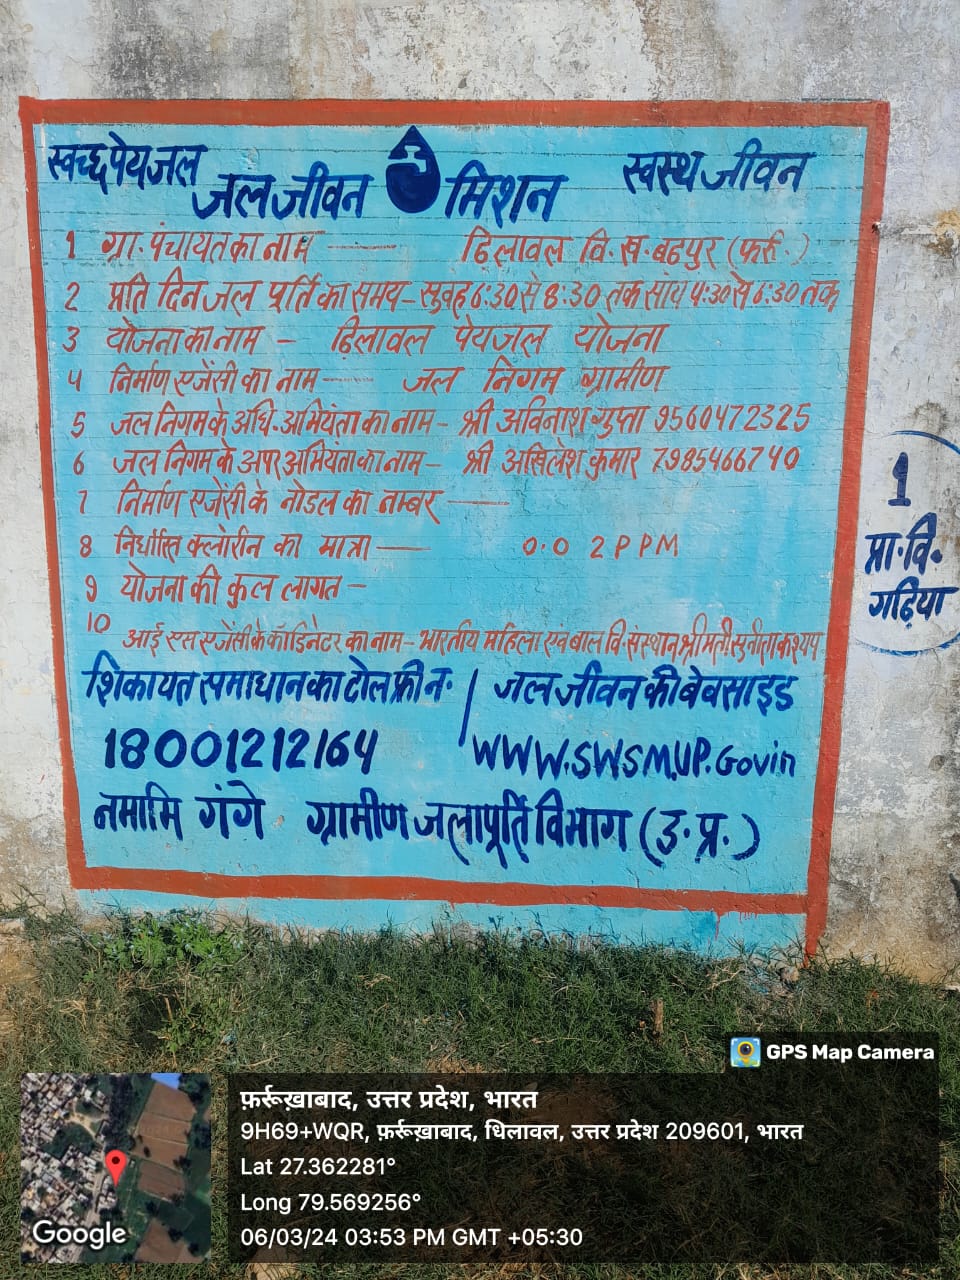 स्वच्छ पेयजल
स्वस्थ जीवन
जल जीवन मिशन
1 ग्रा. पंचायत का नाम — ढिलावल वि. ख. बढपुर (फर्रु.)
2 प्रति दिन जल पूर्ति का समय – सुबह 6:30 से 8:30 तक सांय 4:30 से 6:30 तक
3 योजना का नाम – ढिलावल पेयजल योजना
4 निर्माण एजेंसी का नाम — जल निगम ग्रामीण
5 जल निगम के अधि. अभियंता का नाम – श्री अविनाश गुप्ता 9560472325
6 जल निगम के अपर अभियंता का नाम – श्री अखिलेश कुमार 7985466740
7 निर्माण एजेंसी के नोडल का नम्बर —
8 निर्धारित क्लोरीन की मात्रा — 0.0 2 PPM
9 योजना की कुल लागत –
10 आई एस एजेंसी के कॉडिनेटर का नाम – भारतीय महिला एवं बाल वि. संस्थान श्रीमती सुनीता कश्यप
शिकायत समाधान का टोल फ्री न. / जल जीवन की बेवसाइड
18001212164 WWW.SWSM.UP.Govin
नमामि गंगे ग्रामीण जलापूर्ति विभाग (उ.प्र.)
1
प्रा.वि.
गढ़िया
GPS Map Camera
फ़र्रूख़ाबाद, उत्तर प्रदेश, भारत
9H69+WQR, फ़र्रूख़ाबाद, धिलावल, उत्तर प्रदेश 209601, भारत
Lat 27.362281°
Long 79.569256°
06/03/24 03:53 PM GMT +05:30
Google